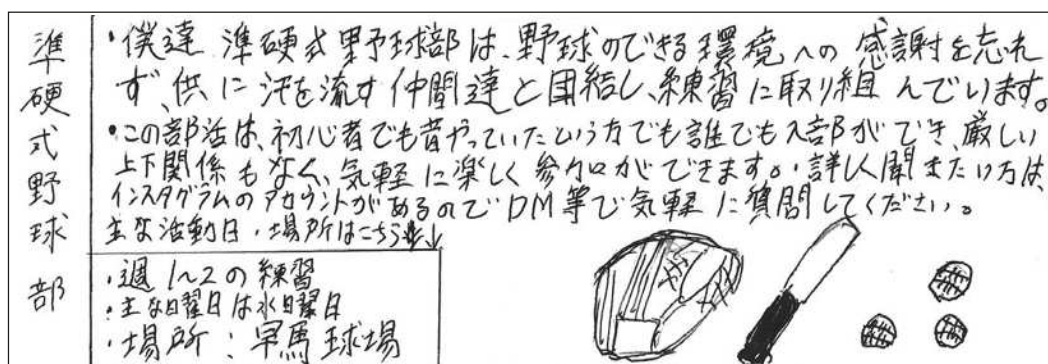 準硬式野球部
・僕達 準硬式野球部は、野球のできる環境への感謝を忘れ
ず、供に汗を流す仲間達と団結し、練習に取り組んでいます。
・この部活は、初心者でも昔やっていたという方でも誰でも入部ができ、厳しい
上下関係もなく、気軽に楽しく参加ができます。・詳しく聞きたい方は、
インスタグラムのアカウントがあるのでDM等で気軽に質問してください。
主な活動日・場所はこちら↓
・週1〜2の練習
・主な日曜日は水曜日
・場所：早馬球場